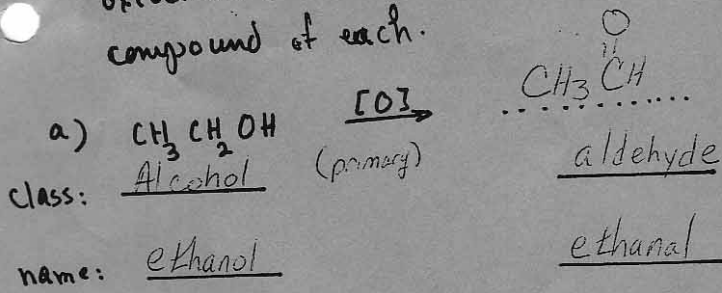 compound of each.
O
a) CH3 CH2 OH [O] CH3 CH
class: Alcohol (primary) aldehyde
name: ethanol ethanal